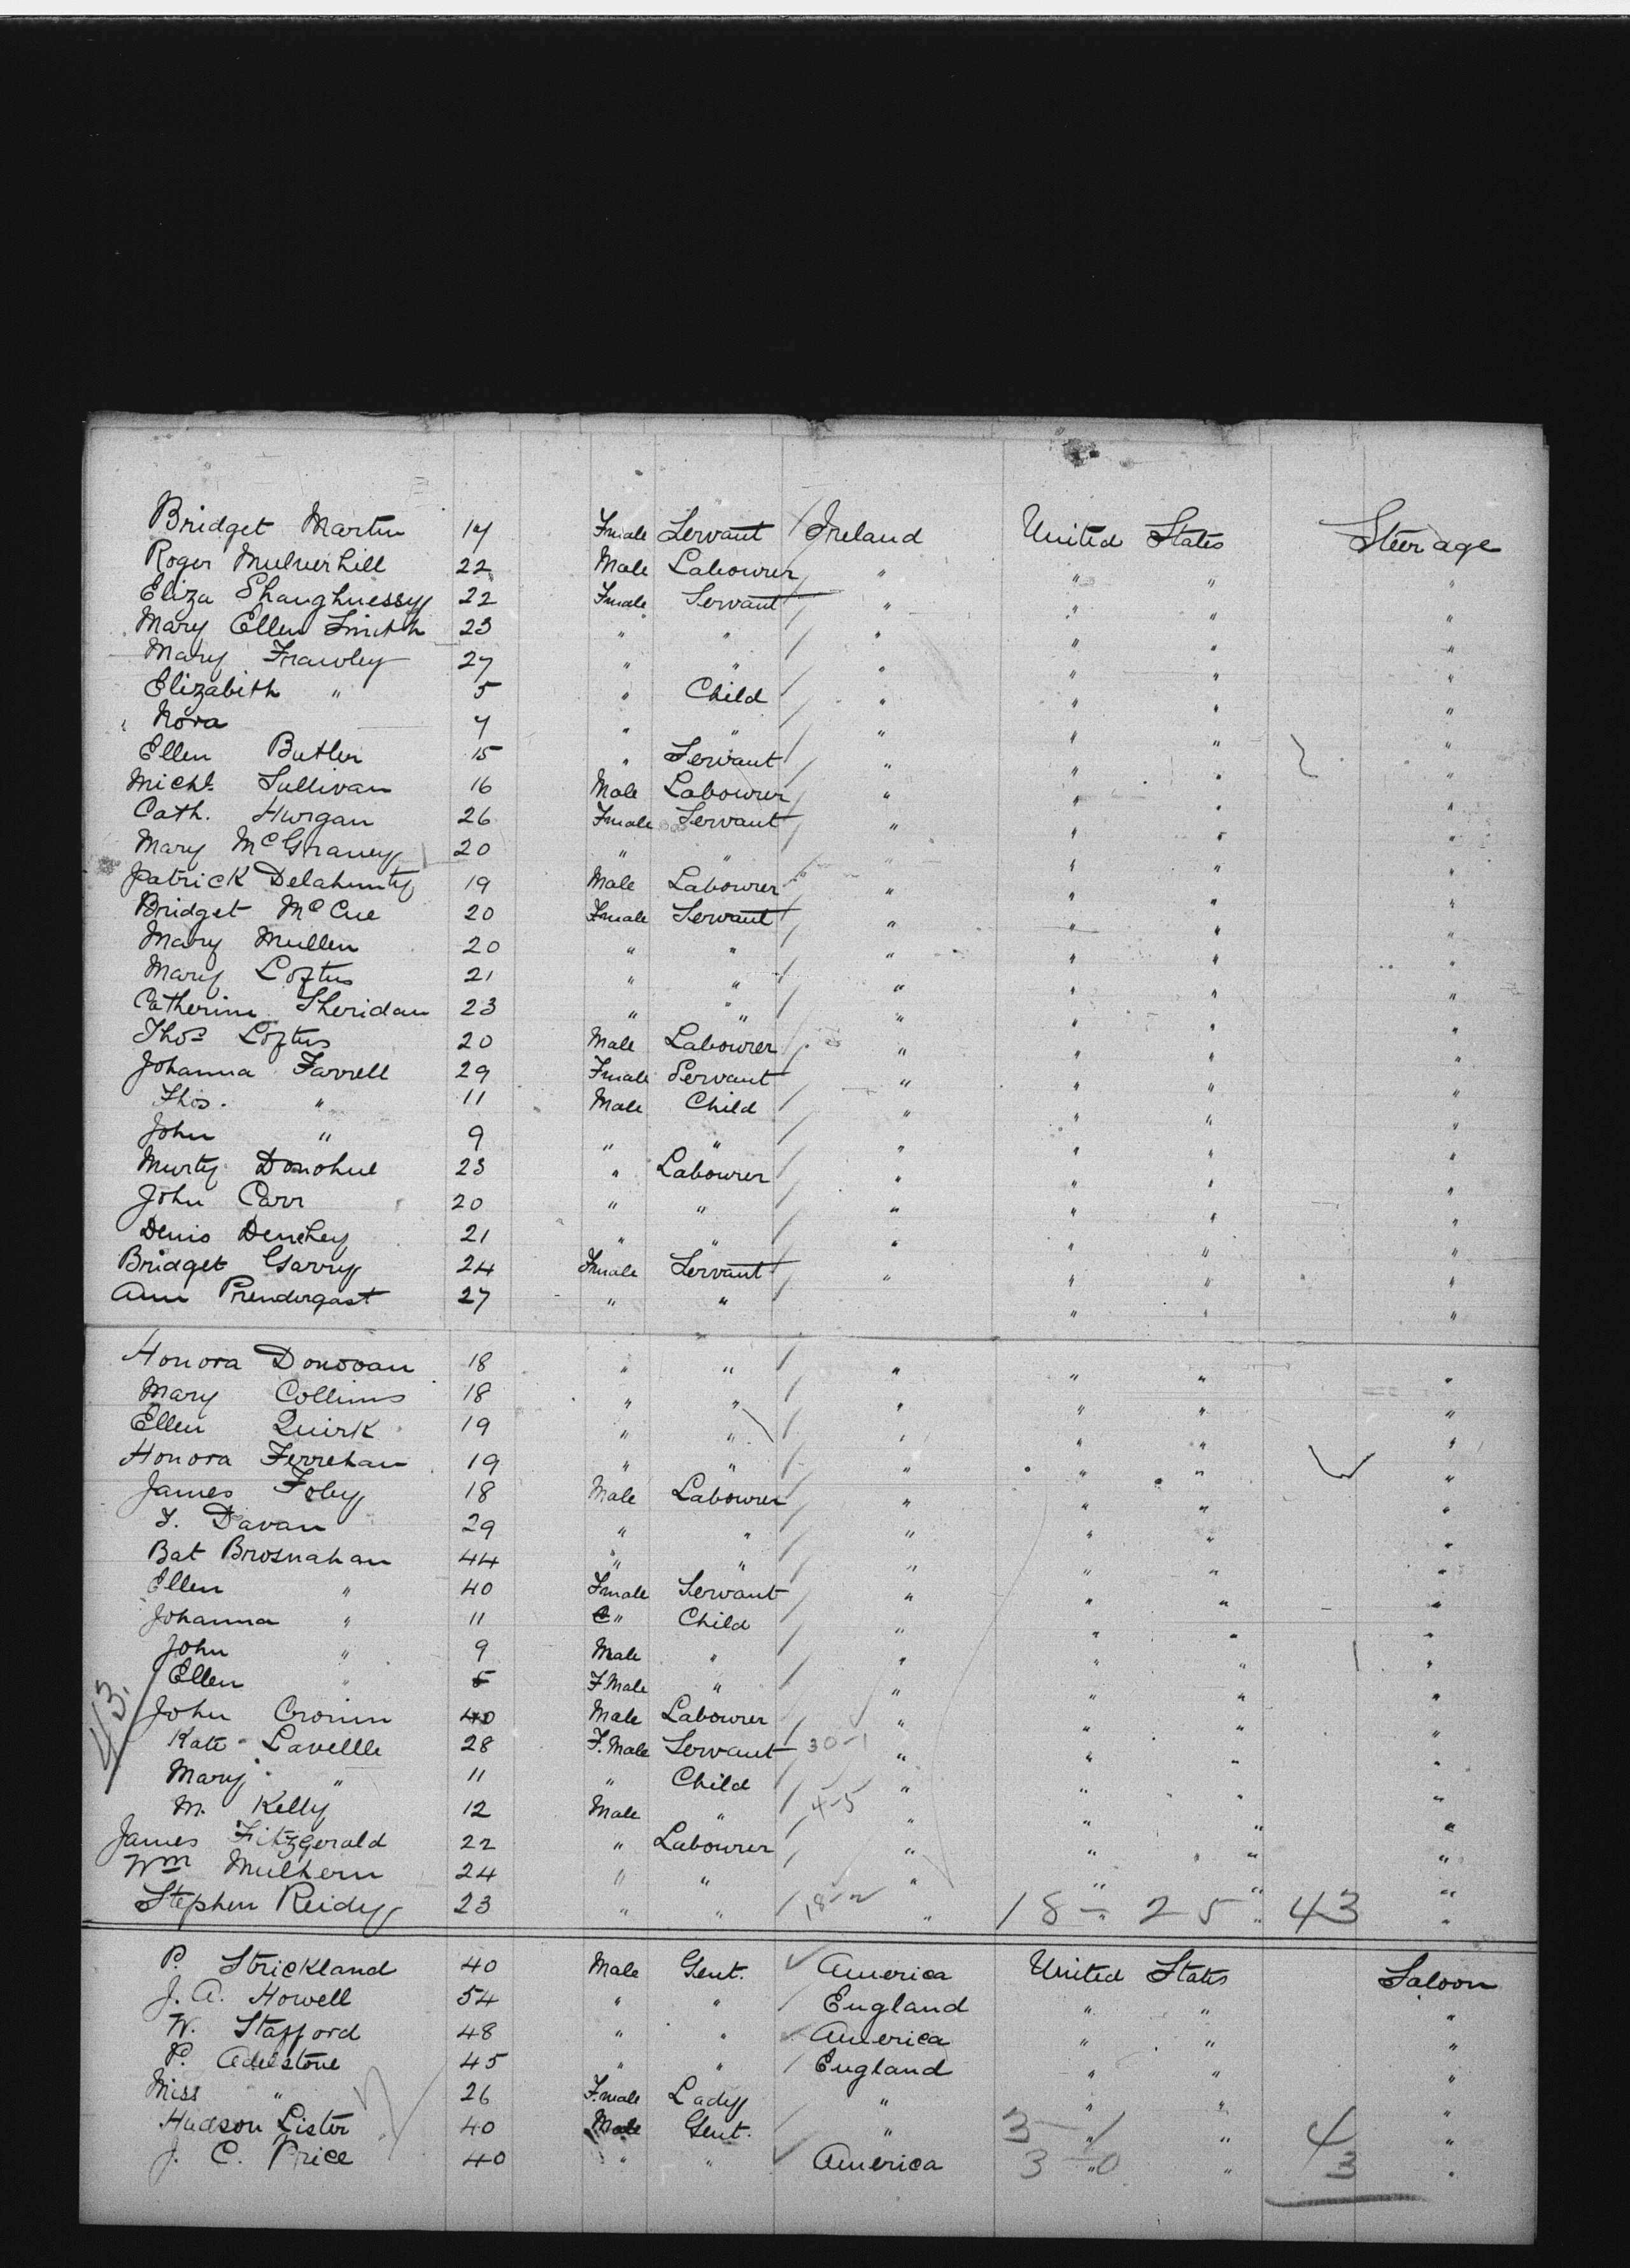 Bridget Martin 17 Female Servant Ireland United States Steerage
Roger Mulverhill 22 Male Labourer " " " "
Eliza Shaughnessy 22 Female Servant " " " "
Mary Ellen Smith 23 " " " " " "
Mary Frawley 27 " " " " " "
Elizabeth " 5 " Child " " " "
Nora 7 " " " " " "
Ellen Butler 15 " Servant " " " "
Michl. Sullivan 16 Male Labourer " " " "
Cath. Hurgan 26 Female Servant " " " "
Mary McGraney 20 " " " " " "
Patrick Delahunty 19 Male Labourer " " " "
Bridget McCue 20 Female Servant " " " "
Mary Mullen 20 " " " " " "
Mary Loftus 21 " " " " " "
Catherine Sheridan 23 " " " " " "
Thos Loftus 20 Male Labourer " " " "
Johanna Farrell 29 Female Servant " " " "
Thos. " 11 Male Child " " " "
John " 9 " " " " " "
Murty Donohue 23 " Labourer " " " "
John Carr 20 " " " " " "
Denis Denehey 21 " " " " " "
Bridget Garry 24 Female Servant " " " "
Ann Prendergast 27 " " " " "
Honora Donovan 18 " " " " " "
Mary Collins 18 " " " " " "
Ellen Quirk 19 " " " " " "
Honora Ferrehan 19 " " " " " "
James Foley 18 Male Labourer " " " "
T. Davan 29 " " " " " "
Bat Brosnahan 44 " " " " " "
Ellen " 40 Female Servant " " " "
Johanna " 11 " Child " " " "
John " 9 Male " " " " "
Ellen " 5 F.Male " " " " "
John Cronin 40 Male Labourer " " " "
Kate Lavellle 28 F.Male Servant 30-1 " " " "
Mary " 11 " Child " " " "
M. Kelly 12 Male " 4-5 " " " "
James Fitzgerald 22 " Labourer " " " "
Wm Mulhern 24 " " " " " "
Stephen Reidy 23 " " 18-2 " 18 - 25 " 43 "
43.
P. Strickland 40 Male Gent. America United States Saloon
J. A. Howell 54 " " England " " "
W. Stafford 48 " " America " " "
P. Adlestone 45 " " England " " "
Miss " 26 F.male Lady " " " "
Hudson Lister 40 Male Gent. " 3-1 " " 4 "
J. C. Price 40 " " America 3-0 " " 3 "